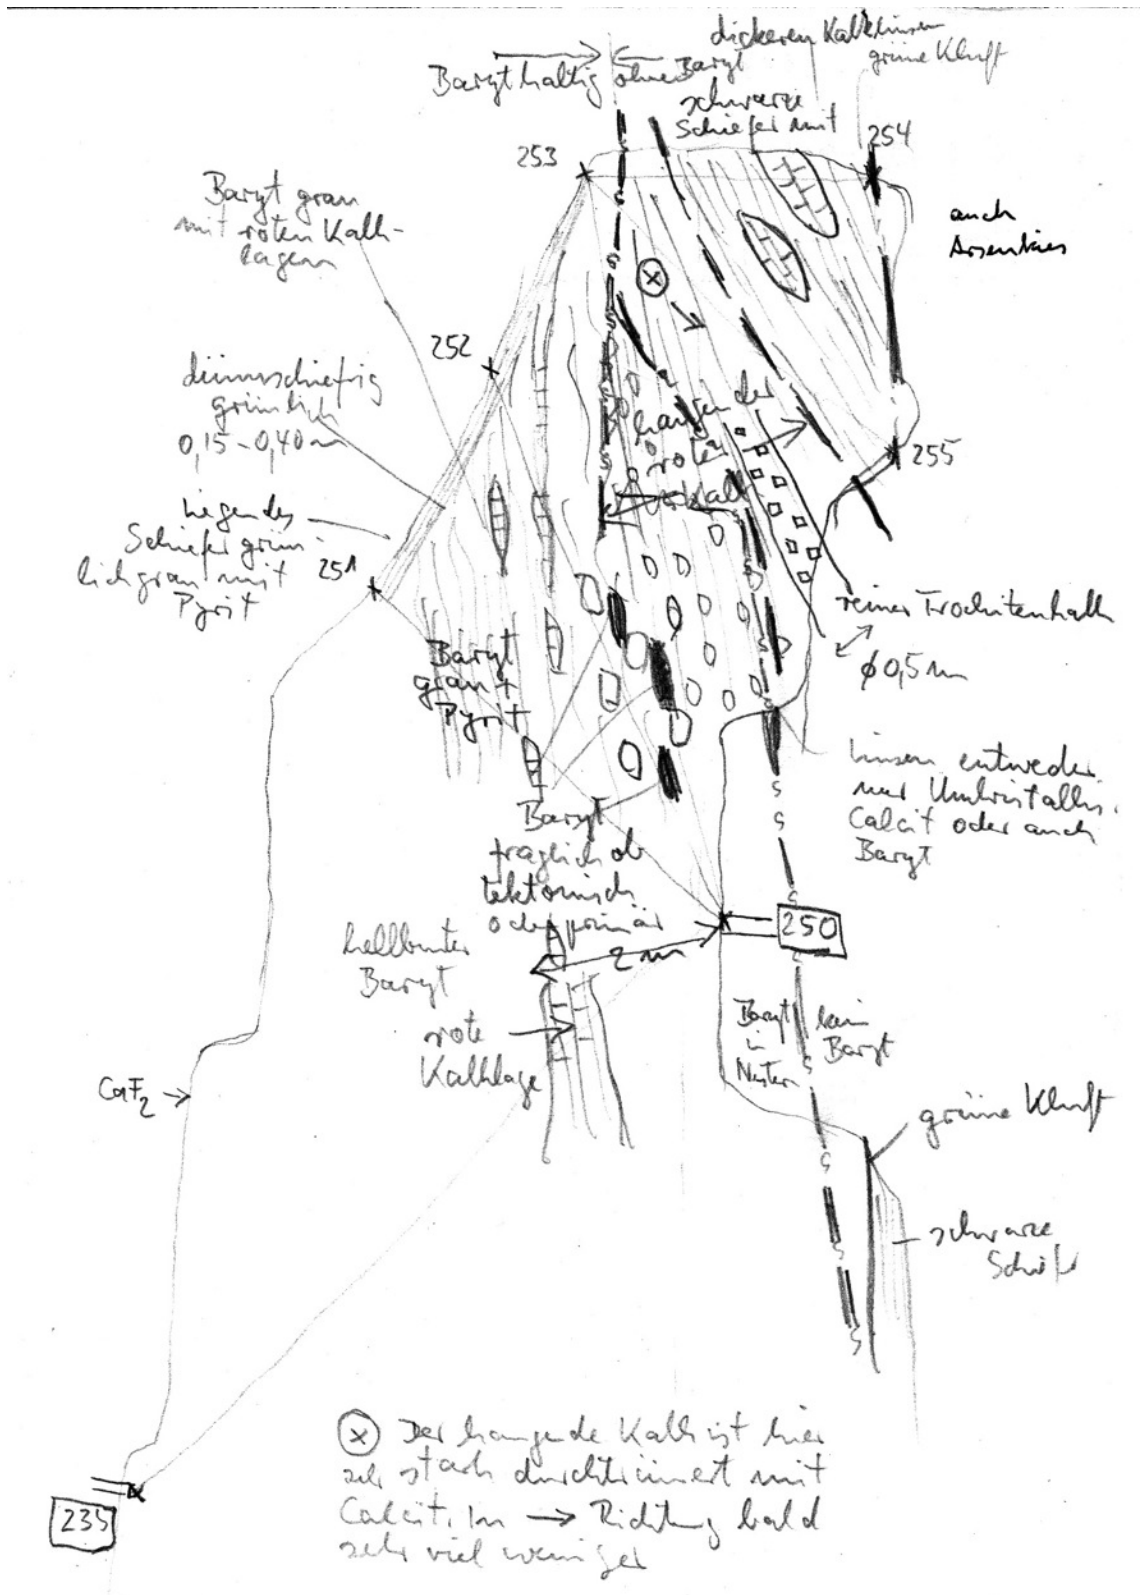 dickeren Kalklinsen
grüne Kluft
Baryt haltig
ohne Baryt
schwarze
Schiefer mit
254
253
auch
Arsenkies
Baryt grau
mit roten Kalk-
lagen
252
dünnschiefrig
grünlich
0,15 - 0,40 m
hangender
roter
Kalk
255
Liegendes
Schiefer grün-
lichgrau mit
Pyrit
251
reiner Trochitenkalk
ϕ 0,5 m
Baryt
grau +
Pyrit
Linsen entweder
nur Umkristallis.
Calcit oder auch
Baryt
Baryt
fraglich ob
tektonisch
oder primär
250
2 m
hellbunter
Baryt
rote
Kalklage
Baryt
in
Nestern
kein
Baryt
CaF2
grüne Kluft
schwarze
Schiefer
x Der hangende Kalk ist hier
sehr stark durchtrümert mit
Calcit. In → Richtung bald
sehr viel weniger
235